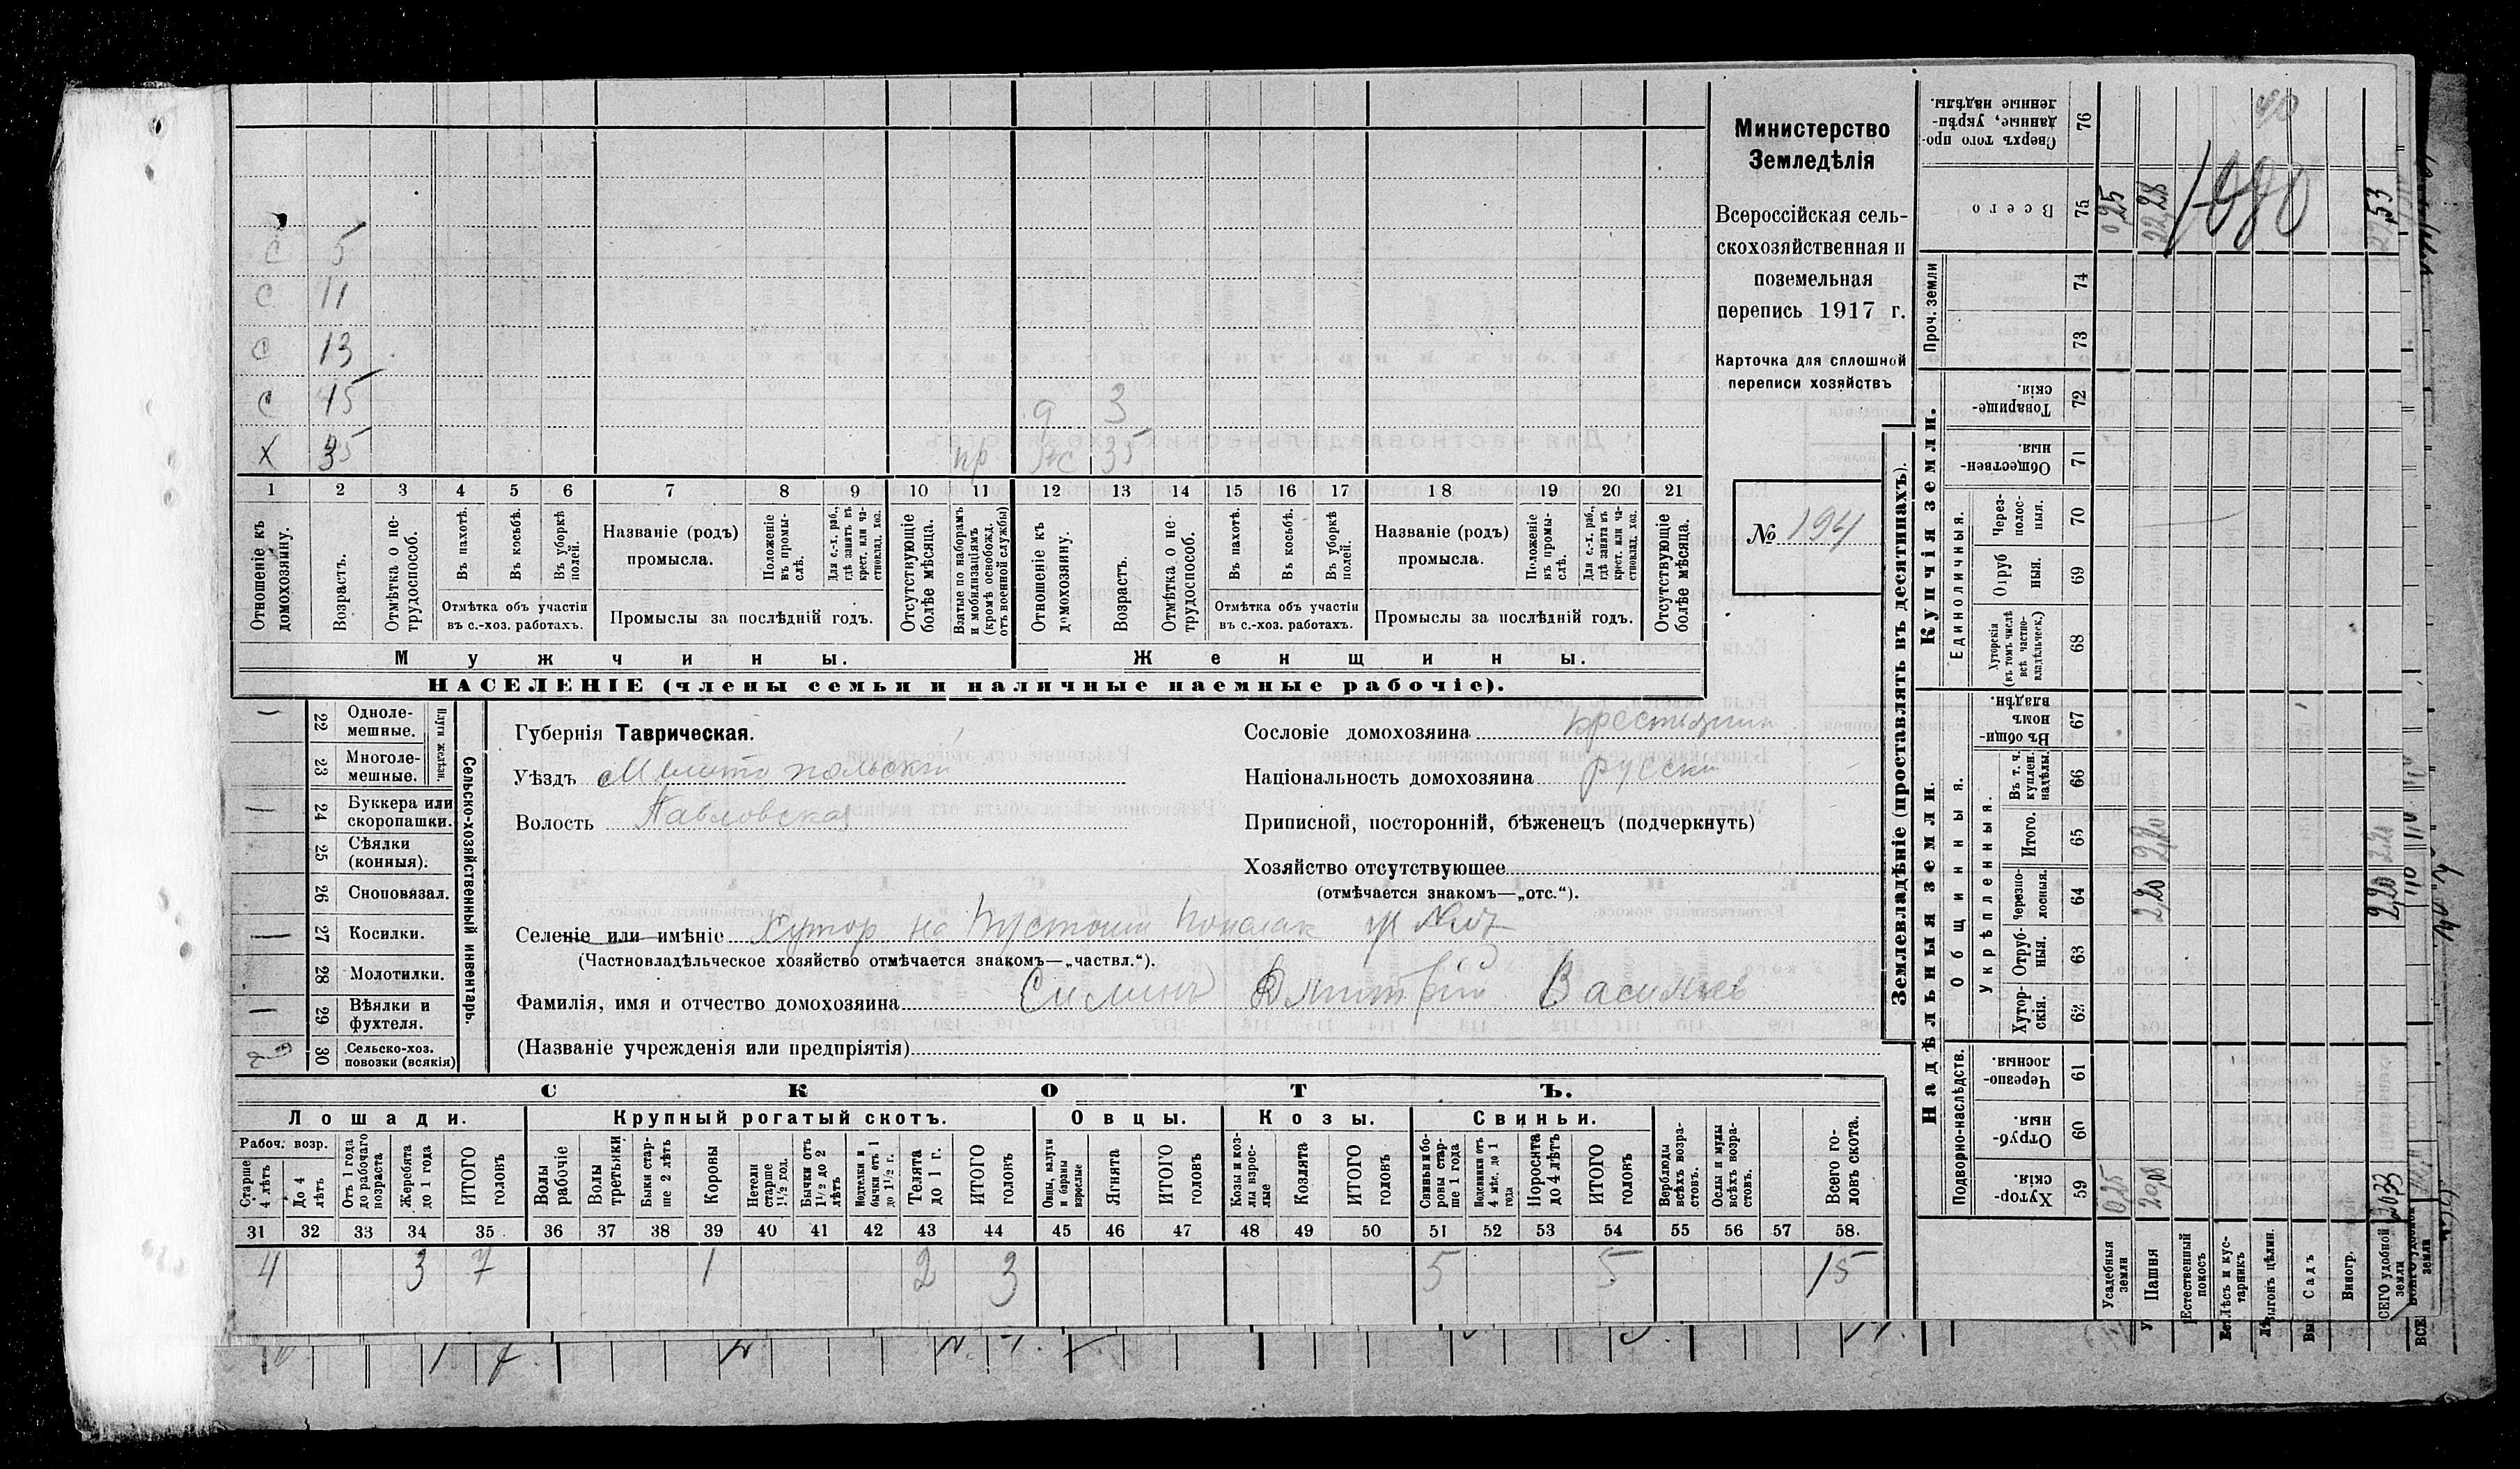 С 5
С 11
С 13
С 15 д 3
Х 35 пр жс 35
1 2 3 4 5 6 7 8 9 10 11 12 13 14 15 16 17 18 19 20 21
Отношеніе къ домохозяину.
Возрастъ.
Отмѣтка о не-трудоспособ.
Въ пахотѣ.
Въ косьбѣ.
Въ уборкѣ полей.
Отмѣтка объ участіи въ с.-хоз. работахъ.
Названіе (родъ) промысла.
Положеніе въ промы-слѣ.
Для с.-х. раб., гдѣ занятъ въ крест. или ча-стновлад. хоз.
Промыслы за послѣдній годъ.
Отсутствующіе болѣе мѣсяца.
Взятые по наборамъ и мобилизаціямъ (кромѣ освобожд. отъ военной службы)
Отношеніе къ домохозяину.
Возрастъ.
Отмѣтка о не-трудоспособ.
Въ пахотѣ.
Въ косьбѣ.
Въ уборкѣ полей.
Отмѣтка объ участіи въ с.-хоз. работахъ.
Названіе (родъ) промысла.
Положеніе въ промы-слѣ.
Для с.-х. раб., гдѣ занята въ крест. или ча-стновлад. хоз.
Промыслы за послѣдній годъ.
Отсутствующіе болѣе мѣсяца.
Мужчины.
Женщины.
НАСЕЛЕНІЕ (члены семьи и наличные наемные рабочіе).
Министерство
Земледѣлія
Всероссійская сель-
скохозяйственная и
поземельная
перепись 1917 г.
Карточка для сплошной
переписи хозяйствъ
№ 194
22 Одноле-мешные.
23 Многоле-мешные.
Плуги желѣзн.
24 Буккера или скоропашки.
25 Сѣялки (конныя).
26 Сноповязал.
27 Косилки.
28 Молотилки.
29 Вѣялки и фухтеля.
30 Сельско-хоз. повозки (всякія)
Сельско-хозяйственный инвентарь.
Губернія Таврическая.
Уѣздъ Мелитопольскій
Волость Павловская
Сословіе домохозяина крестьянин
Національность домохозяина русски
Приписной, посторонній, бѣженецъ (подчеркнуть)
Хозяйство отсутствующее
(отмѣчается знакомъ—„отс.“).
Селеніе или имѣніе Хутор на Пустоши
(Частновладѣльческое хозяйство отмѣчается знакомъ—„частвл.“).
Фамилія, имя и отчество домохозяина Силинъ Дмитрій Васильев
(Названіе учрежденія или предпріятія)
СКОТЪ.
Лошади. Крупный рогатый скотъ. Овцы. Козы. Свиньи.
Рабоч. возр.
Старше 4 лѣтъ
До 4 лѣтъ
Отъ 1 года до рабочаго возраста
Жеребята до 1 года
ИТОГО головъ
Волы рабочіе
Волы третьяки
Быки стар-ше 2 лѣтъ
Коровы
Нетели старше 1½ год.
Бычки отъ 1½ до 2 лѣтъ
Подтелки и бычки отъ 1 до 1½ г.
Телята до 1 г.
ИТОГО головъ
Овцы, валухи и бараны взрослые
Ягнята
ИТОГО головъ
Козы и коз-лы взрос-лые
Козлята
ИТОГО головъ
Свиньи и бо-ровы стар-ше 1 года
Подсвинки отъ 4 мѣс. до 1 года
Поросята до 4 лѣтъ
ИТОГО головъ
Верблюды всѣхъ возра-стовъ.
Ослы и мулы всѣхъ возра-стовъ.
Всего го-ловъ скота.
31 32 33 34 35 36 37 38 39 40 41 42 43 44 45 46 47 48 49 50 51 52 53 54 55 56 57 58.
4 3 7 1 2 3 5 5 15
Землевладѣніе (проставлять въ десятинахъ).
Надѣльныя земли.
Купчія земли.
Проч. земли
Подворно-наслѣдств.
Общинныя.
Укрѣпленныя.
Единоличныя.
Сверхъ того про-данные, укрѣп-ленные надѣлы. 76
Всего 75
74
73
Товарище-скія. 72
Обществен-ныя. 71
Через-полос-ныя. 70
Отруб ныя. 69
Хуторскія (въ томъ числѣ всѣ частно-владѣльческ.) 68
Въ общи-номъ владѣн. 67
Въ т. ч. куплен. надѣлы. 66
Итого. 65
Черезпо-лосныя. 64
Отруб-ныя. 63
Хутор-скія. 62
Черезпо-лосныя. 61
Отруб-ныя. 60
Хутор-скія. 59
Усадебныя земли
Пашня
Естественный покосъ
Лѣсъ и кус-тарникъ
Выгонъ цѣлин.
Садъ
Виногр.
ВСЕГО удобной земли
025 025
22,28 2,20 2,20 20,08
22,53 2,20 2,20 2033